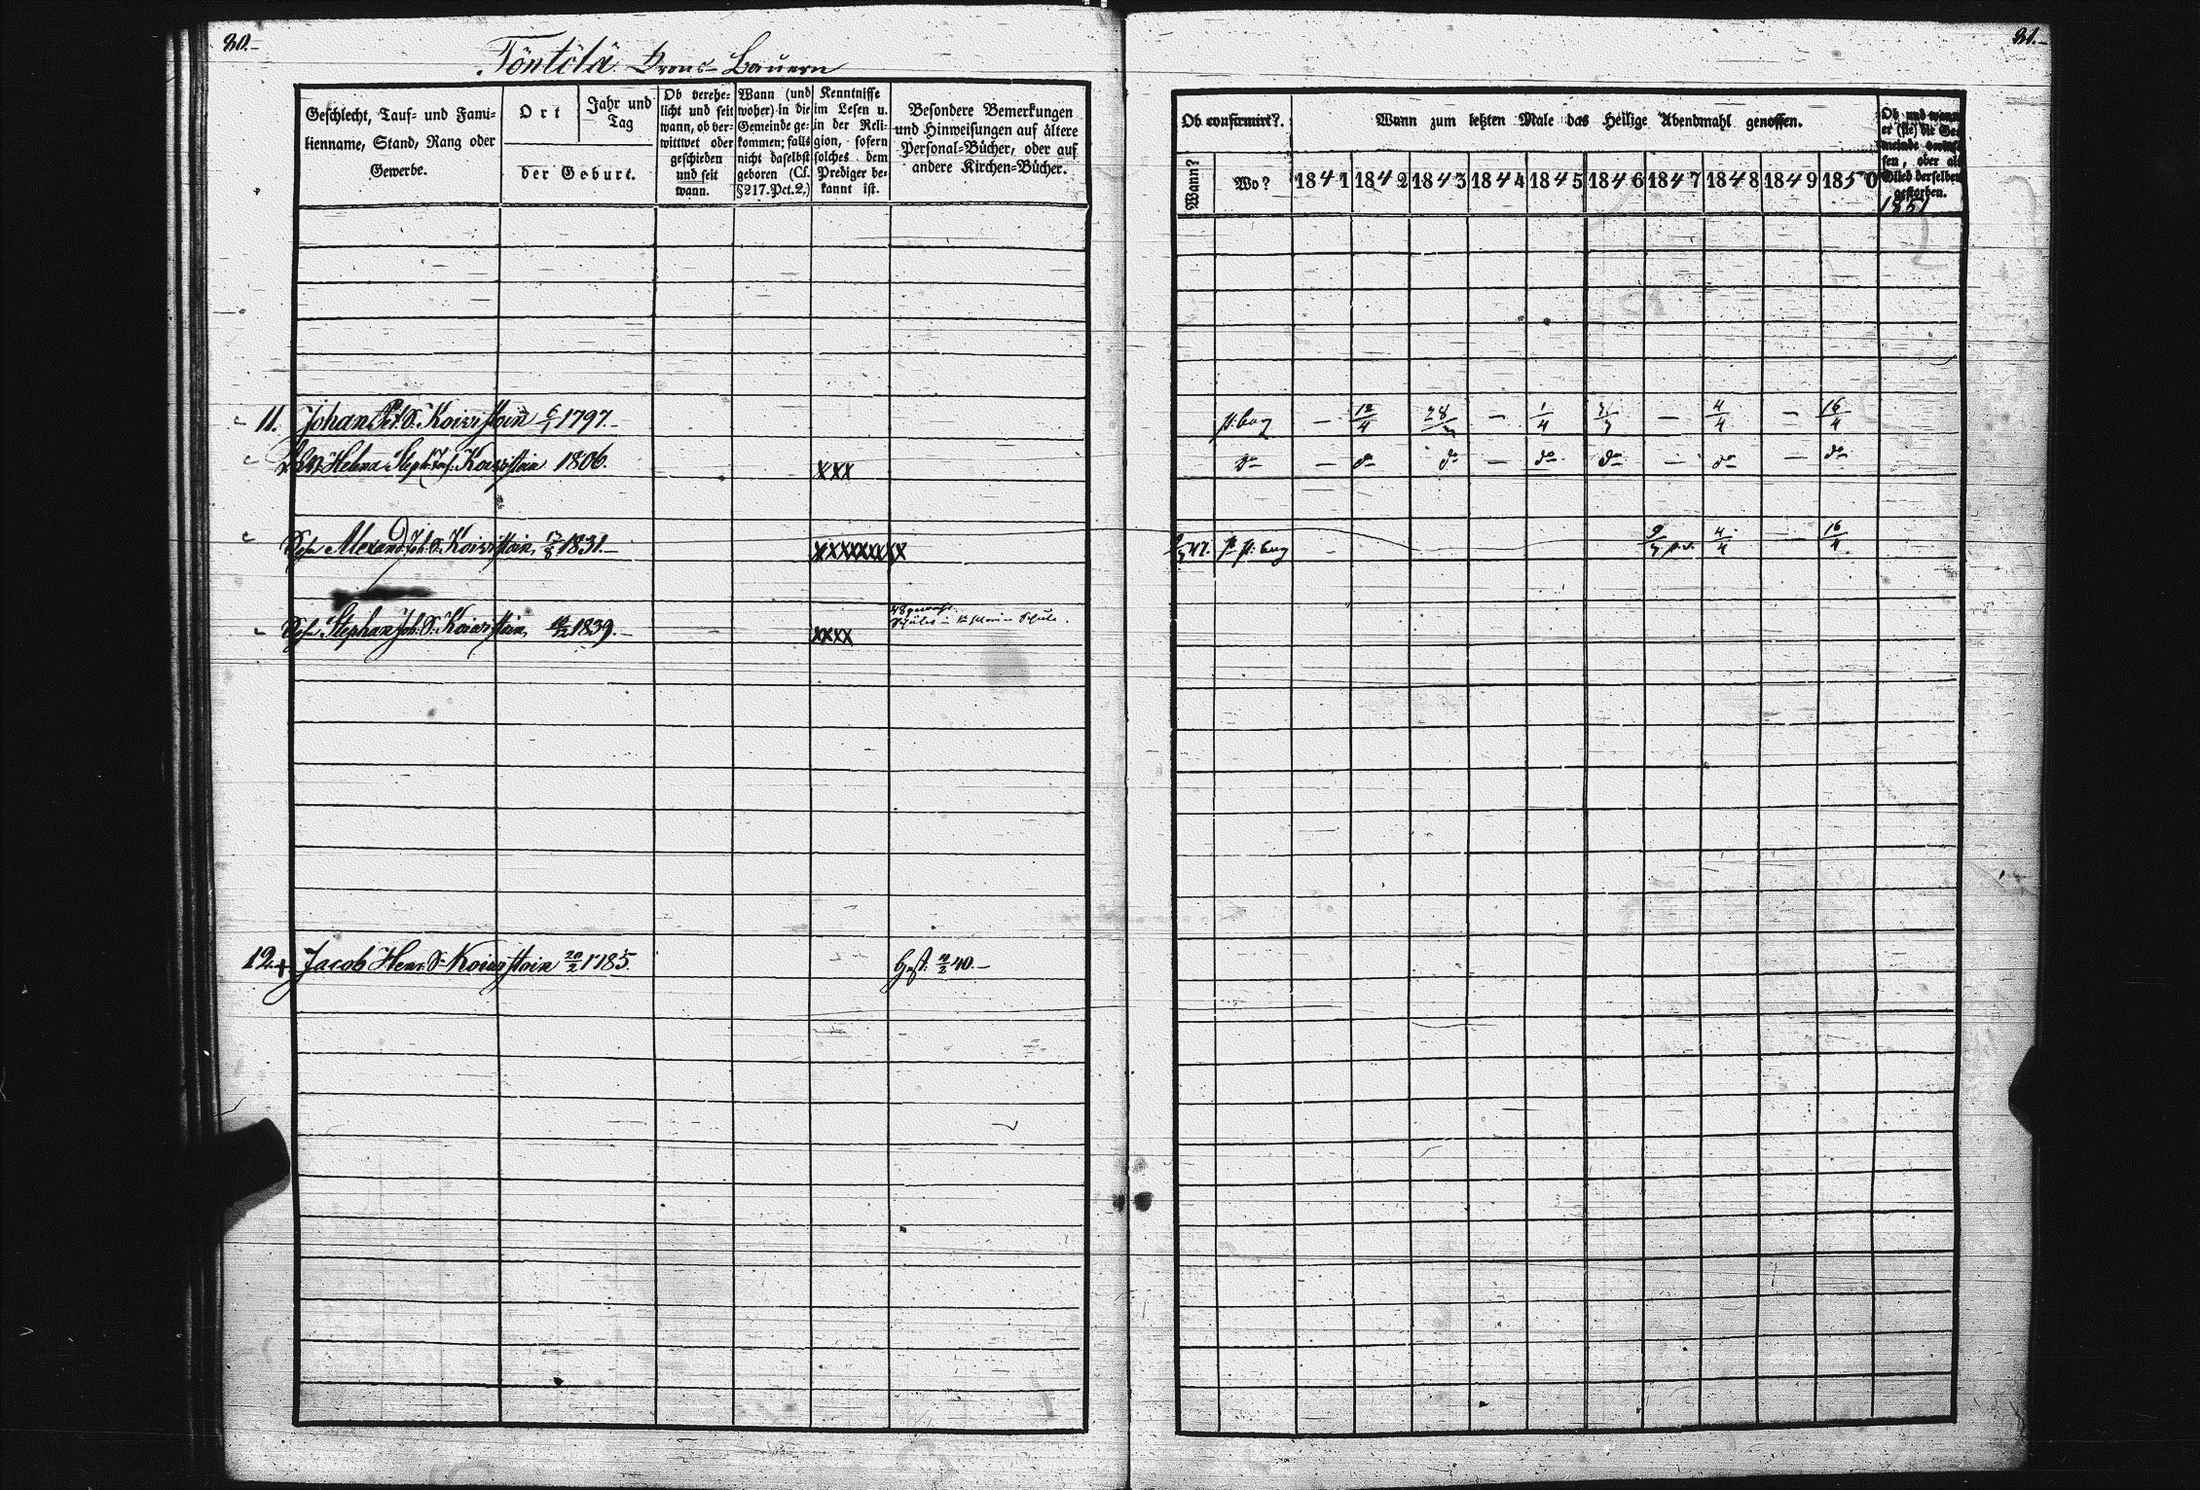 80.
Töntölä Krons-Bauern
Geschlecht, Tauf- und Fami-
lienname, Stand, Rang oder
Gewerbe.
Ort
Jahr und
Tag
der Geburt.
Ob verehe-
licht und seit
wann, ob ver-
wittwet oder
geschieden
und seit
wann.
Wann (und
woher) in die
Gemeinde ge-
kommen; falls
nicht daselbst
geboren (Cf.
§217. Pct. 2.)
Kenntnisse
im Lesen u.
in der Reli-
gion, sofern
solches dem
Prediger be-
kannt ist.
Besondere Bemerkungen
und Hinweisungen auf ältere
Personal-Bücher, oder auf
andere Kirchen-Bücher.
11. Johan Pet. S. Koivistoin 1797.
Helena Steph. Koivistoin 1806. xxx
Sohn Alexand. Joh. S. Koivistoin, 1831. xxxxxxxx
Sohn Stephan Joh. S. Koivistoin, 1839. xxxx
12. + Jacob Henr. S. Koivistoin 20/2 1785. Gest. 40.
81.
Ob confirmirt?
Wann?
Wo?
Wann zum letzten Male das Heilige Abendmahl genossen.
1841 1842 1843 1844 1845 1846 1847 1848 1849 1850
Ob und wann
er (sie) die Ge-
meinde verlas-
sen, oder als
Glied derselben
gestorben.
1851
— 12/4 — 1/4 — 4/4 — 16/4
do — do do — do do — do — do
47. 4/4 — 16/4